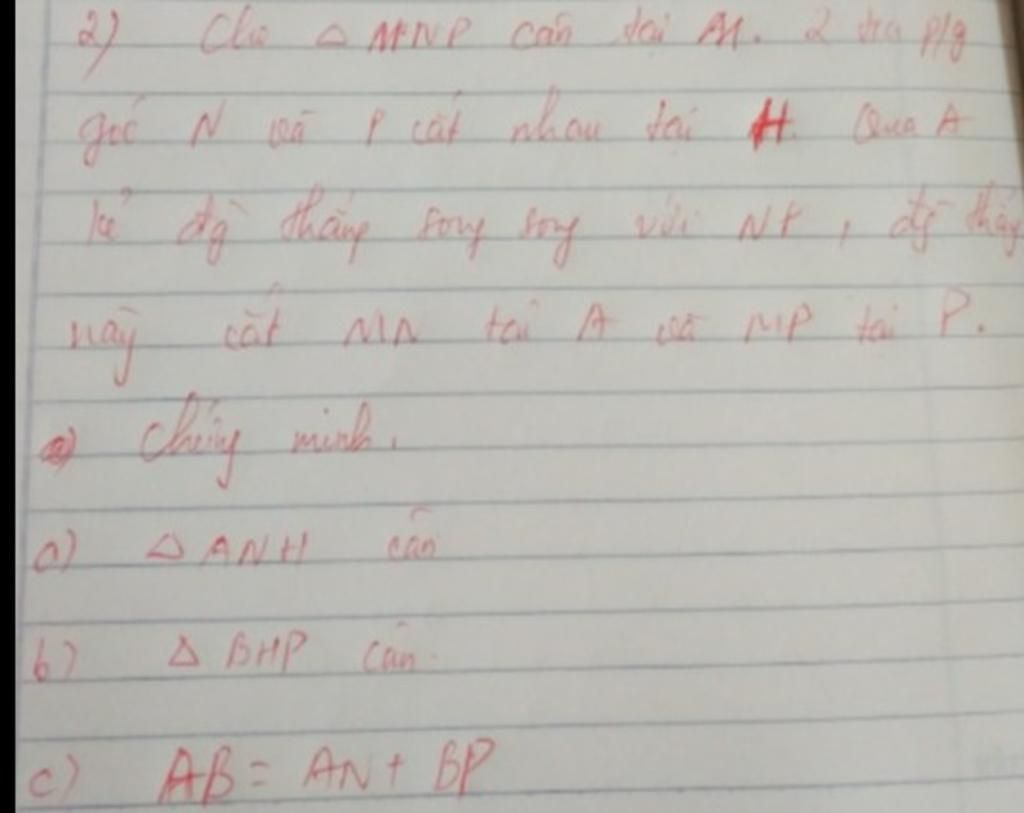 2) Cho △ MNP cân tại M. 2 tia p/g
góc N và P cắt nhau tại H. Qua A
kẻ đg thẳng song song với NP, đg thẳng
này cắt MN tại A và MP tại P.
Chứng minh.
a) △ ANH cân
b) △ BHP cân.
c) AB = AN + BP